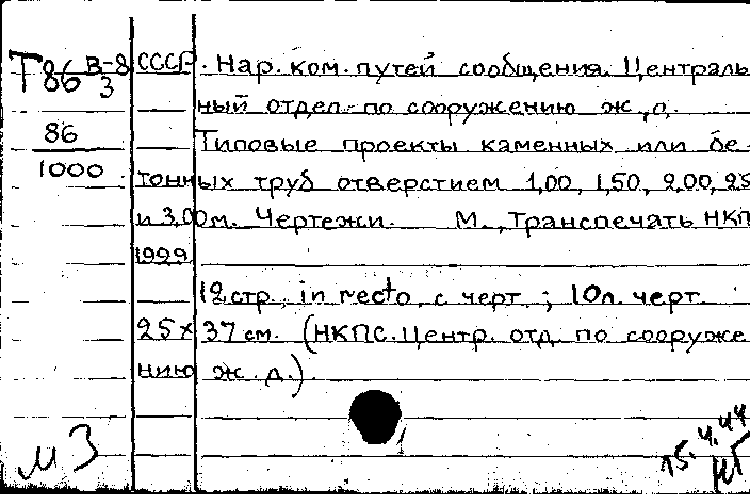 Т86 В-8 СССР. Нар. ком. путей сообщения. Централь
3
ный отдел по сооружению ж.д.
86
Типовые проекты каменных или бе-
1000
тонных труб отверстием 1,00, 1,50, 2,00, 25
и 3,00 м. Чертежи. М., Транспечать НКП
1929
12 стр. in recto, с черт.; 10 л. черт.
25 х 37 см. (НКПС. Центр. отд. по сооруже
нию ж.д.).
М 3
15. 4. 44